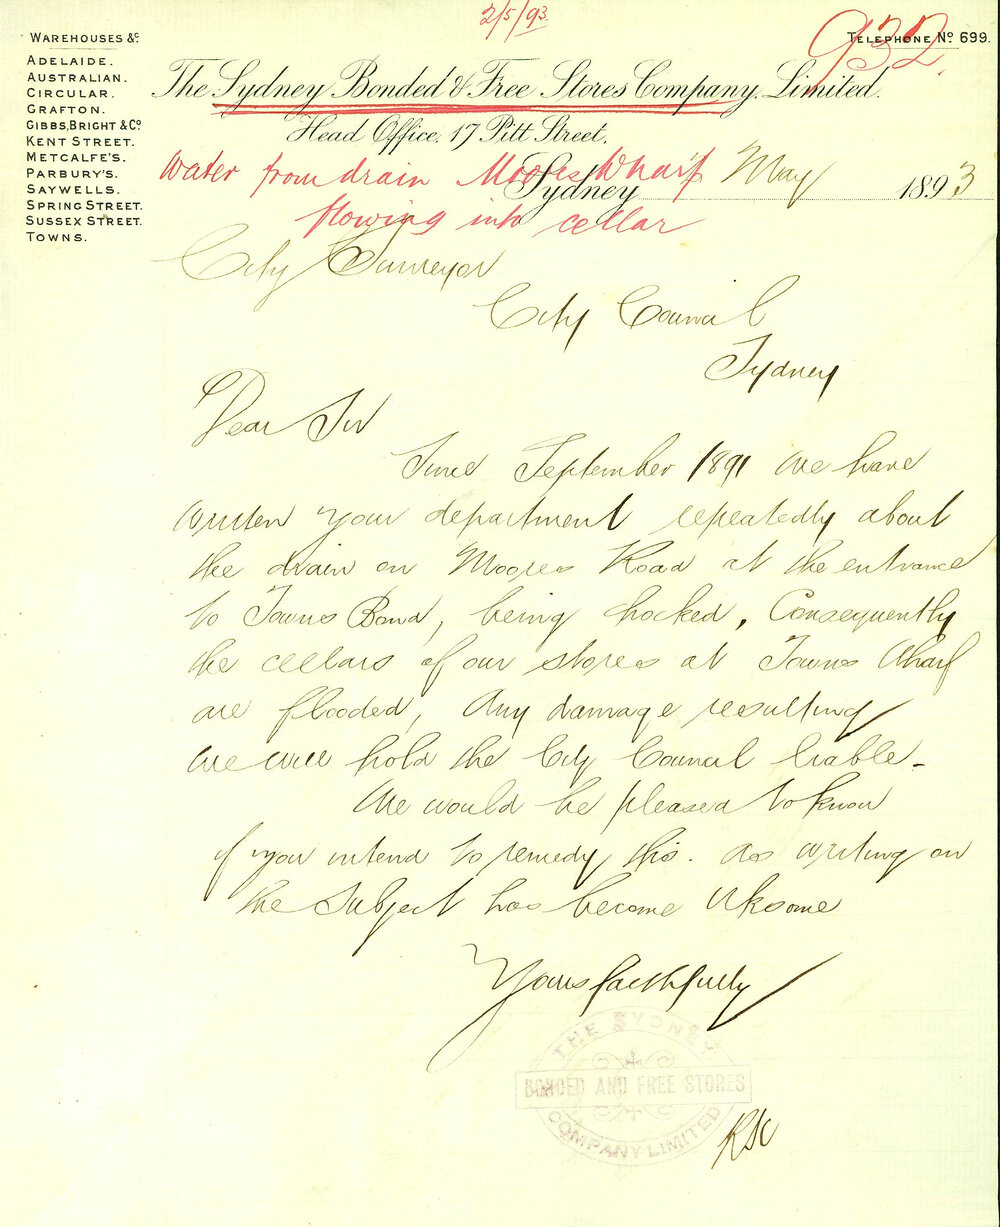 2/5/93
932
WAREHOUSES &c.
ADELAIDE.
AUSTRALIAN.
CIRCULAR.
GRAFTON.
GIBBS, BRIGHT & Co
KENT STREET.
METCALFE'S.
PARBURY'S.
SAYWELLS.
SPRING STREET.
SUSSEX STREET.
TOWNS.
TELEPHONE No 699.
The Sydney Bonded & Free Stores Company, Limited.
Head Office, 17 Pitt Street,
Water from drain Moores Wharf
flowing into cellar
Sydney May 1893
City Surveyor
City Council
Sydney
Dear Sir
Since September 1891 we have
written your department repeatedly about
the drain on Moores Road at the entrance
to Towns Bond, being choked, Consequently
the cellars of our stores at Towns Wharf
are flooded, Any damage resulting
we will hold the City Council liable.
We would be pleased to know
if you intend to remedy this. as writing on
the subject has become irksome
Yours faithfully
THE SYDNEY
BONDED AND FREE STORES
COMPANY LIMITED